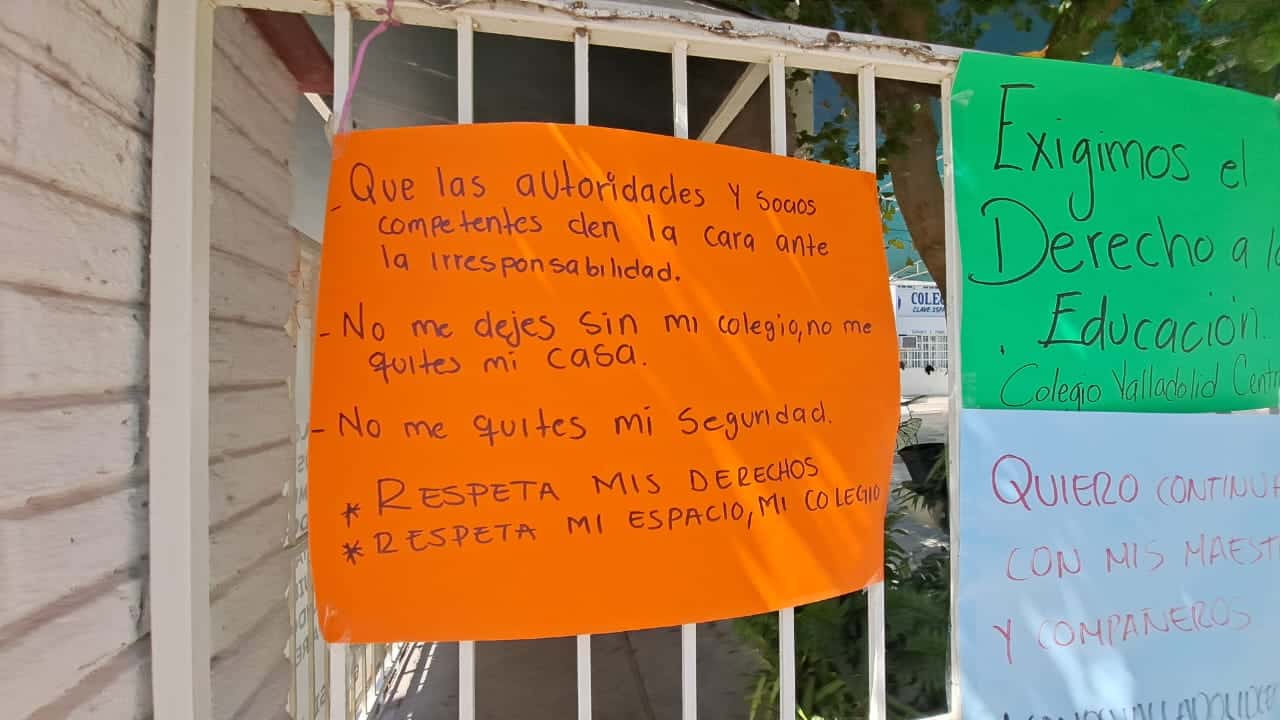 - Que las autoridades y socios
competentes den la cara ante
la irresponsabilidad.
- No me dejes sin mi colegio, no me
quites mi casa.
- No me quites mi seguridad.
* RESPETA MIS DERECHOS
* RESPETA MI ESPACIO, MI COLEGIO
Exigimos el
Derecho a la
Educación.
Colegio Valladolid Centr
QUIERO CONTINUA
CON MIS MAEST
Y COMPAÑEROS
COLE